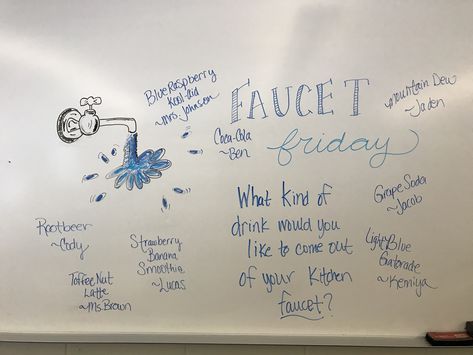 FAUCET
friday
What Kind of
drink would you
like to come out
of your Kitchen
faucet?
Blue Raspberry
Kool-aid
~Mrs. Johnson
Coca-Cola
~Ben
Mountain Dew
~Jaden
Grape Soda
~Jacob
Light Blue
Gatorade
~Kemiya
Rootbeer
~Cody
Strawberry
Banana
Smoothie
~Lucas
Toffee Nut
Latte
~Ms. Brown